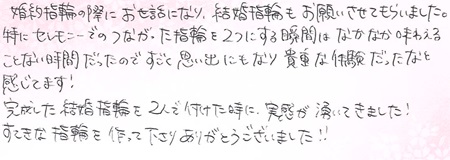 婚約指輪の際にお世話になり、結婚指輪もお願いさせてもらいました。
特にセレモニーでのつながった指輪を2つにする瞬間はなかなか味わえる
ことない時間だったのですごく思い出にもなり貴重な体験だったなと
感じてます!
完成した結婚指輪を2人で付けた時に、実感が湧いてきました!
すてきな指輪を作って下さりありがとうございました!!